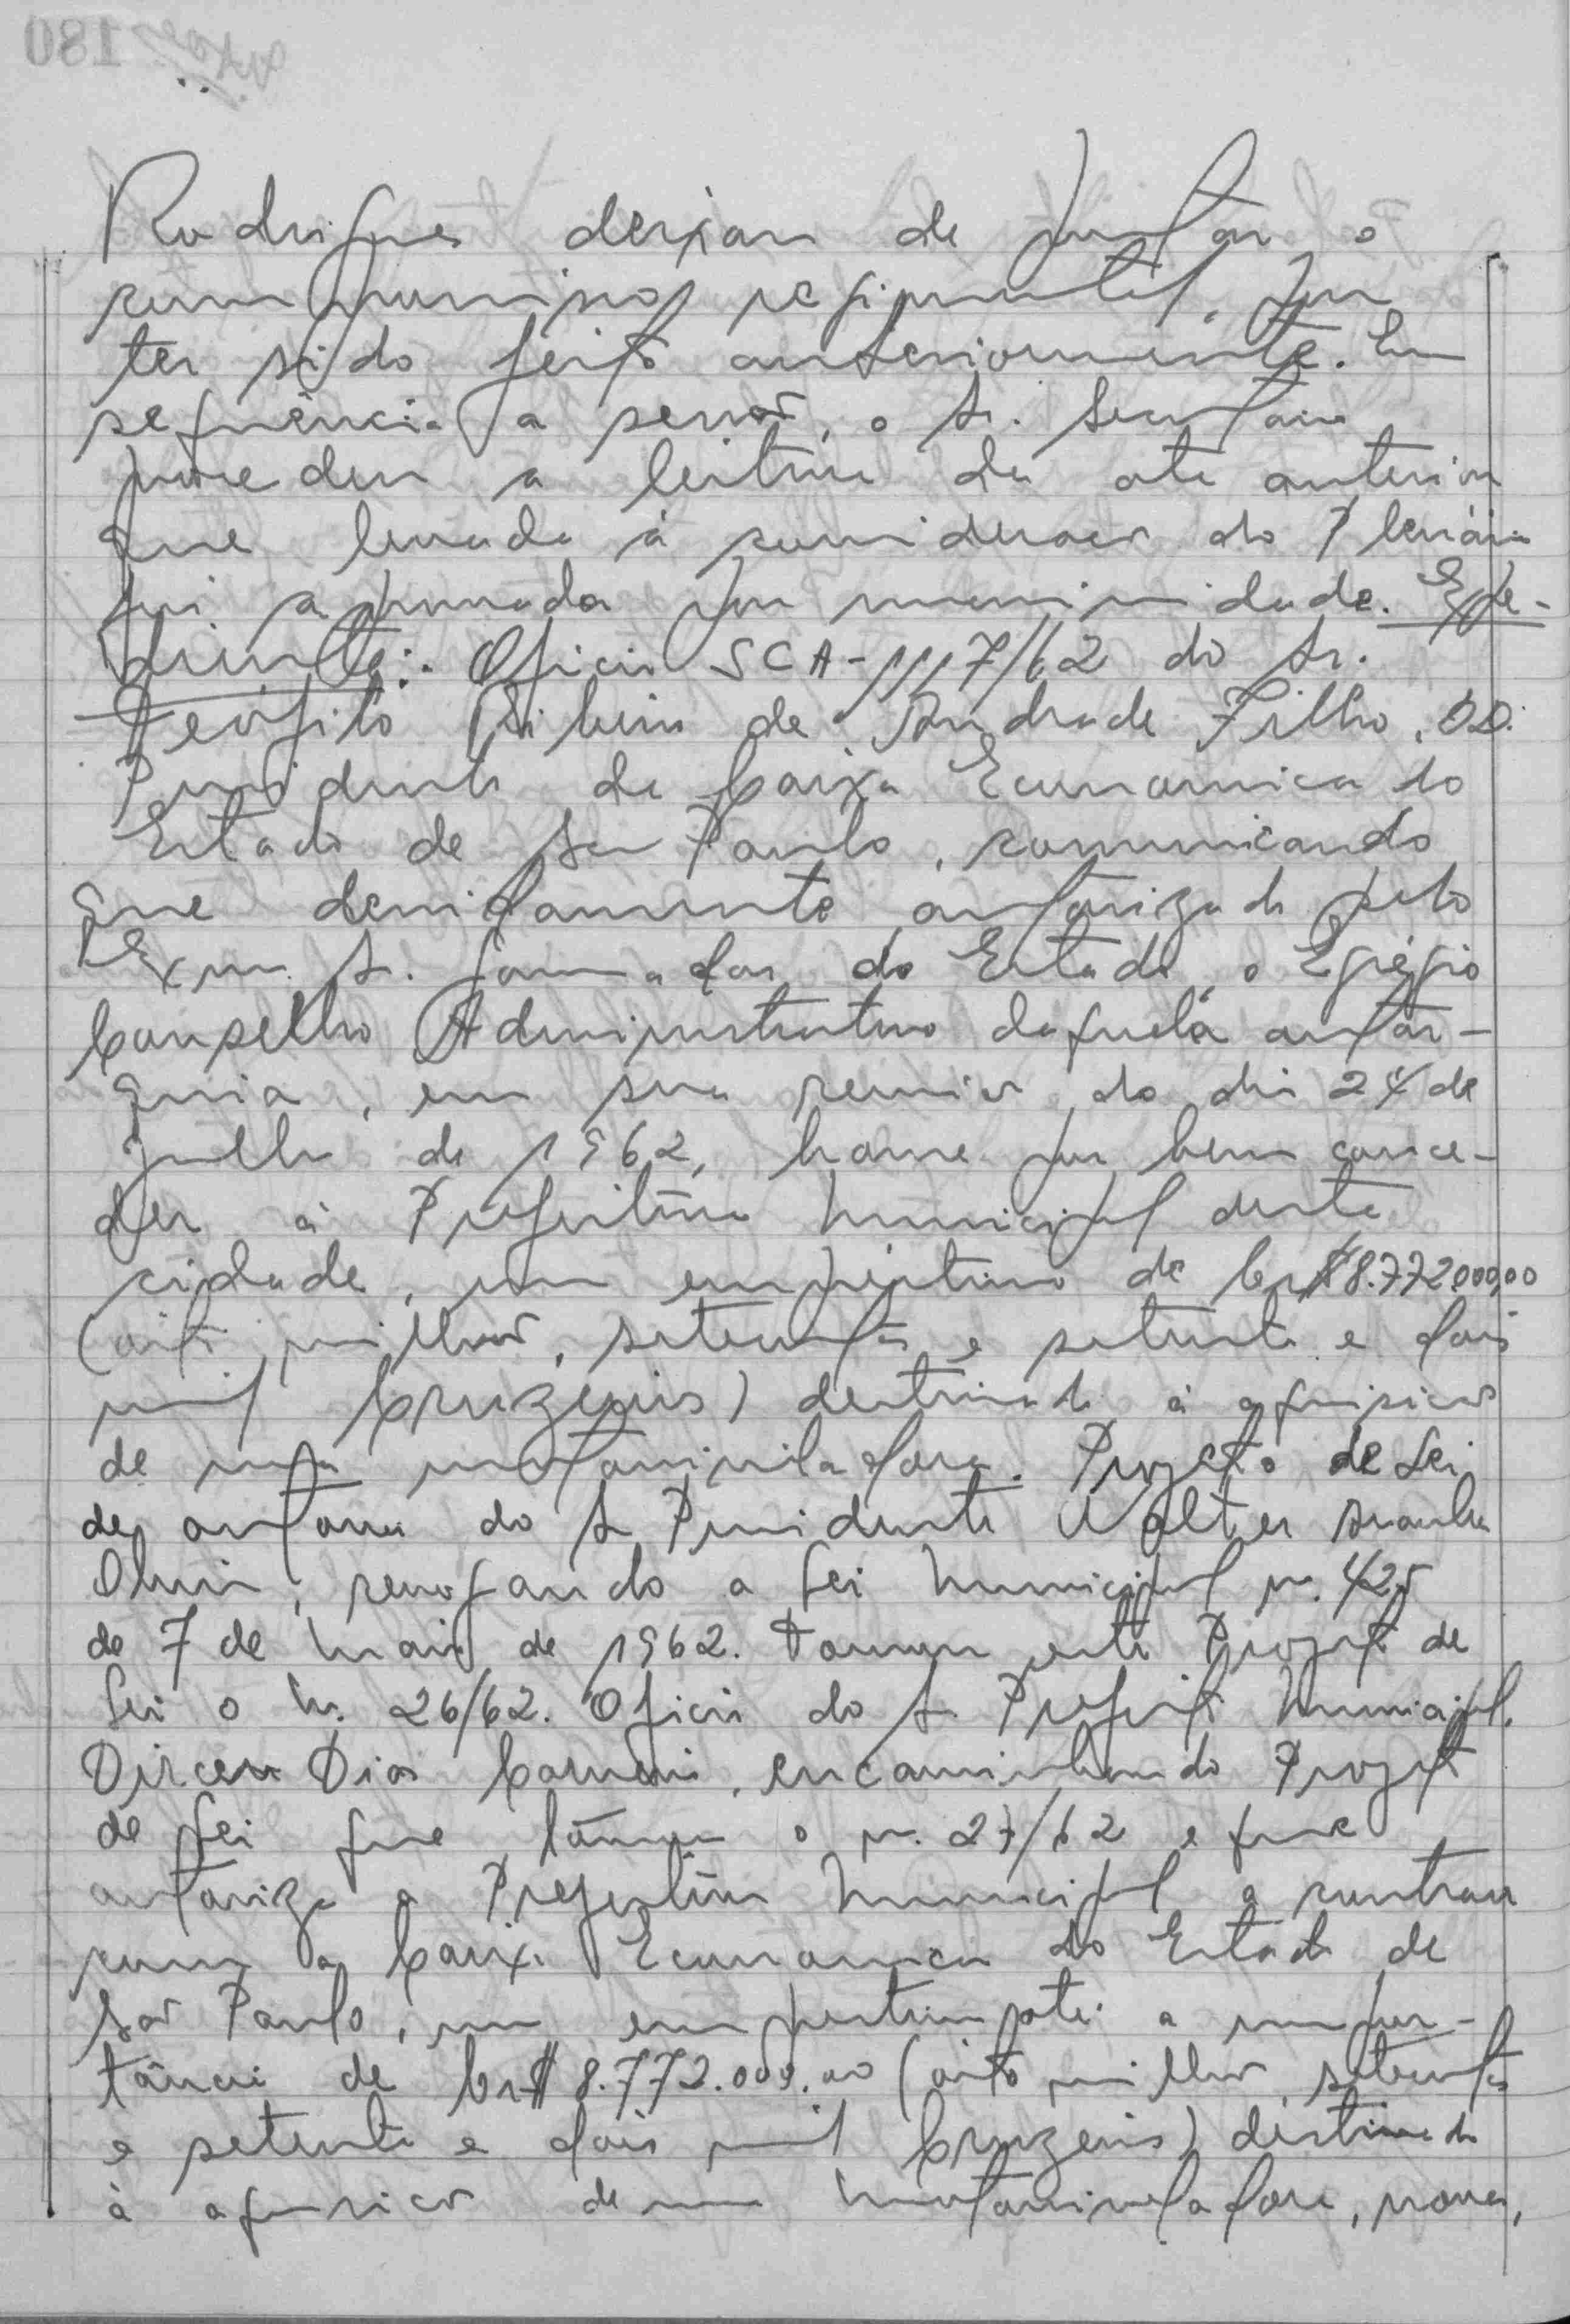 Rodrigues deixou de prestar o
compromisso regimental, por
ter sido feito anteriormente. Em
sequência a sessão, o Sr. Secretário
procedeu a leitura da ata anterior
que levada à consideração do Plenário
foi aprovada por unanimidade. Expe-
diente: Oficio SCA-1117/62 do Sr.
Teófilo Ribeiro de Andrade Filho, DD.
Presidente da Caixa Economica do
Estado de São Paulo, comunicando
que devidamente autorizado pelo
Exmo. Sr. Governador do Estado, o Egrégio
Conselho Administrativo daquela autar-
quia, em sua reunião do dia 24 de
julho de 1962, houve por bem conce-
der à Prefeitura Municipal desta
cidade, um empréstimo de Cr$ 8.772.000,00
(oito milhões, setecentos e setenta e dois
mil cruzeiros) destinado à aquisição
de uma motoniveladora. Projeto de Lei
de autoria do Sr Presidente Walter
Oliveira, revogando a Lei Municipal n. 425
de 7 de Maio de 1962. Tomou este Projeto de
Lei o n. 26/62. Oficio do Sr Prefeito Municipal,
Dirceu Dias Carneiro, encaminhando Projeto
de Lei que tomou o n. 27/62 e que
autoriza a Prefeitura Municipal a contrair
com a Caixa Economica do Estado de
São Paulo, um emprestimo até a impor-
tância de Cr$ 8.772.000,00 (oito milhões, setecentos
e setenta e dois mil cruzeiros) destinado
à aquisição de uma motoniveladora, nova,